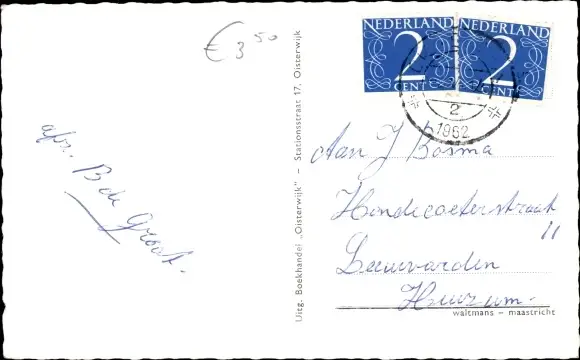 € 3 50
NEDERLAND NEDERLAND
2 2
CENT CENT
2
1962
afz. B de Groot.
Uitg. Boekhandel „Oisterwijk" – Stationsstraat 17, Oisterwijk
Aan J Bosma
Hondecoeterstraat
11
Leeuwarden
Huizum.
waltmans – maastricht